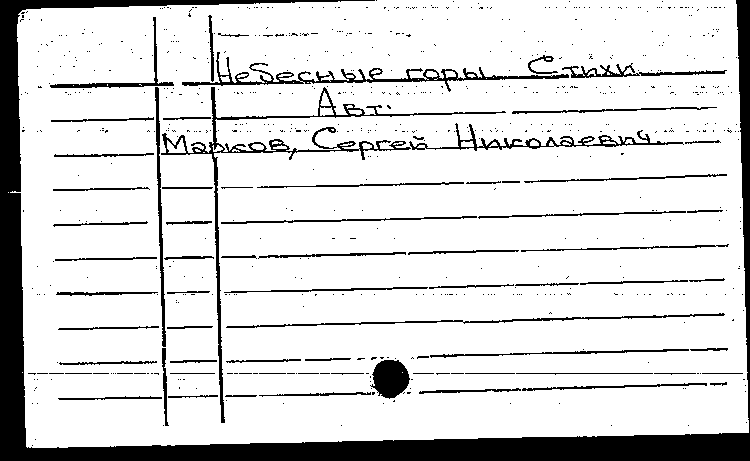 Небесные горы. Стихи
Авт.
Марков, Сергей Николаевич.